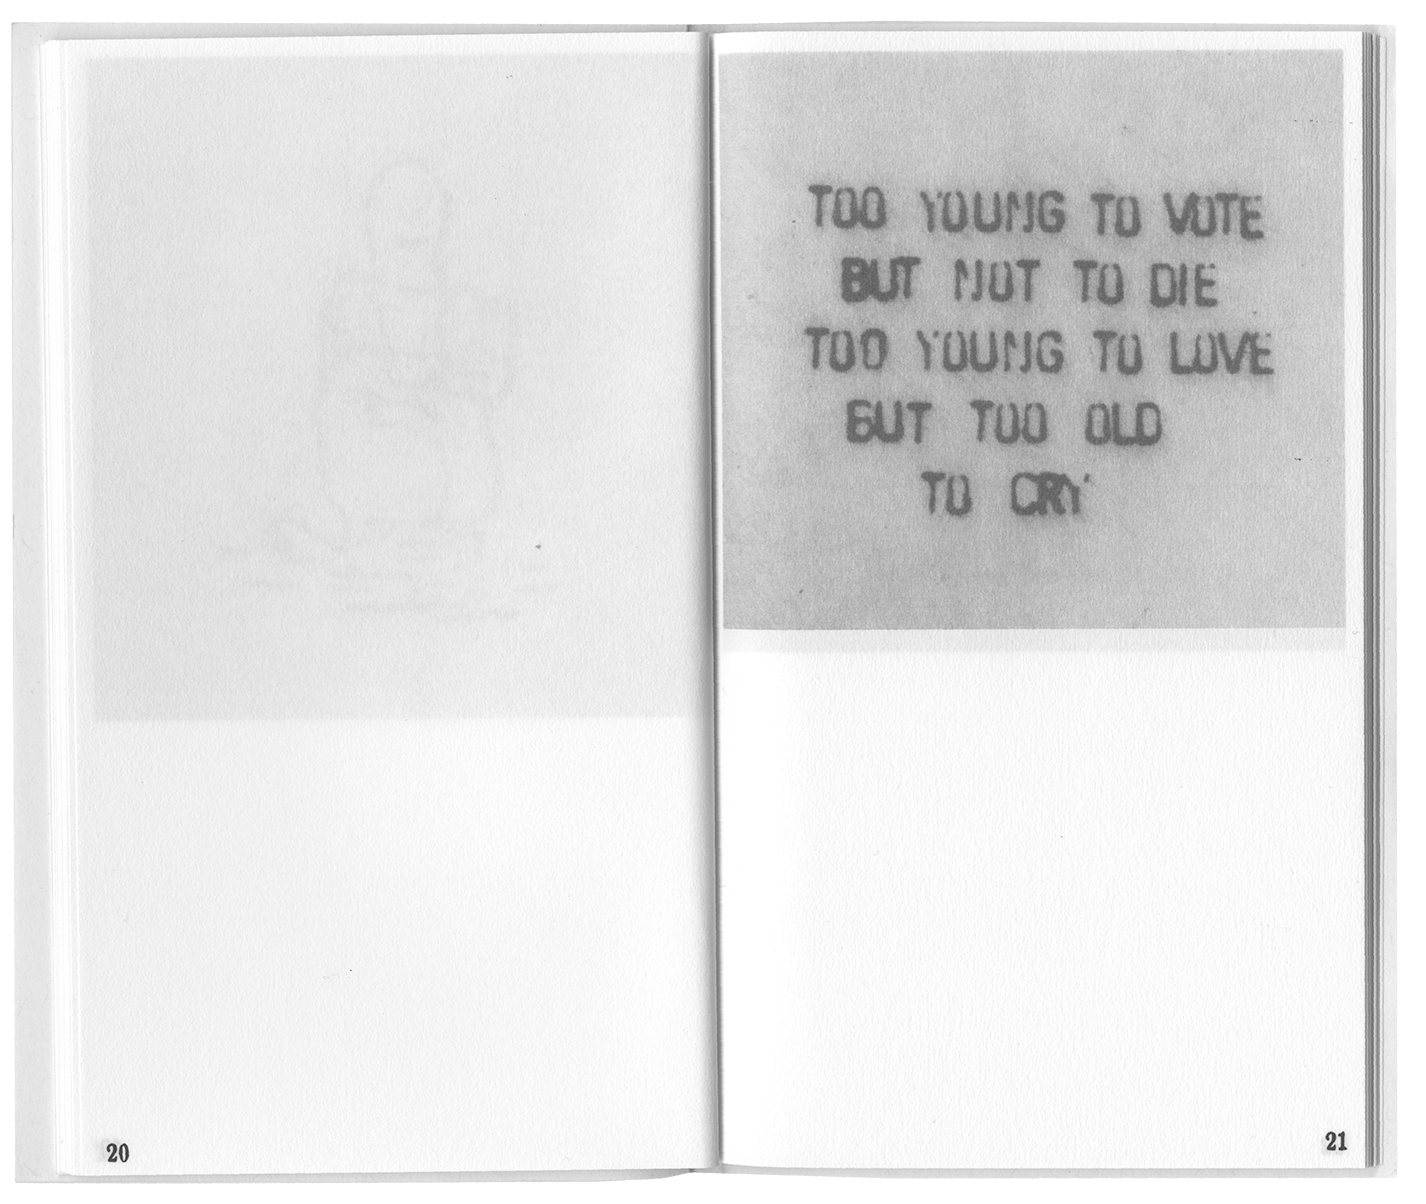 TOO YOUNG TO VOTE
BUT NOT TO DIE
TOO YOUNG TO LOVE
BUT TOO OLD
TO CRY
20
21